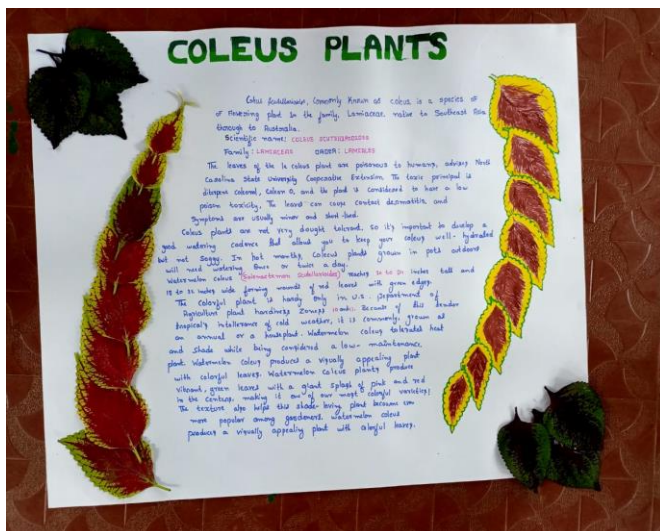 COLEUS PLANTS
Commonly known as coleus is a species of
of flowering plant in the family, Lamiaceae native to Southeast Asia
through to Australia.
Scientific name: COLEUS
Family: LAMIACEAE ORDER: LAMIALES
The leaves of the coleus plant are poisonous to humans, advises North
Carolina State University Cooperative Extension. The toxic principal is
diterpene and the plant is considered to have a low
poison toxicity. The leaves can cause contact dermatitis and
Symptoms are usually minor and short-lived.
Coleus plants are not very tolerant. So it's important to develop a
good watering cadence that allows you to keep your coleus well-hydrated
but not soggy. In hot months, coleus plants grown in pots outdoors
will need watering once or twice a day.
Watermelon coleus reaches to inches tall and
18 to inches wide forming mounds of red leaves with green edges.
The colorful plant is hardy only in U.S. Department of
Agriculture plant hardiness zones 10 and Because of this tender
tropical's intolerance of cold weather, it is commonly grown as
an annual or a houseplant. Watermelon coleus tolerates heat
and shade while being considered a low-maintenance
plant. Watermelon coleus produces a visually appealing plant
with colorful leaves. Watermelon coleus plants produce
vibrant, green leaves with a giant splash of pink and red
in the centers, making it one of our most colorful varieties;
The texture also helps this shade loving plant become
more popular among gardeners. Watermelon coleus
produces a visually appealing plant with colorful leaves.